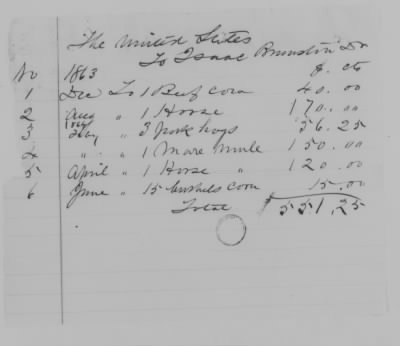 The United States
To Isaac Dr
No 1863 $. cts
1 Dec To 1 Beef cow 40.00
2 Aug " 1 Horse 170.00
3 " 3 Pork hogs 56.25
4 " " 1 Mare Mule 150.00
5 April " 1 Horse " 120.00
6 June " 15 bushels corn 15.00
Total 551.25